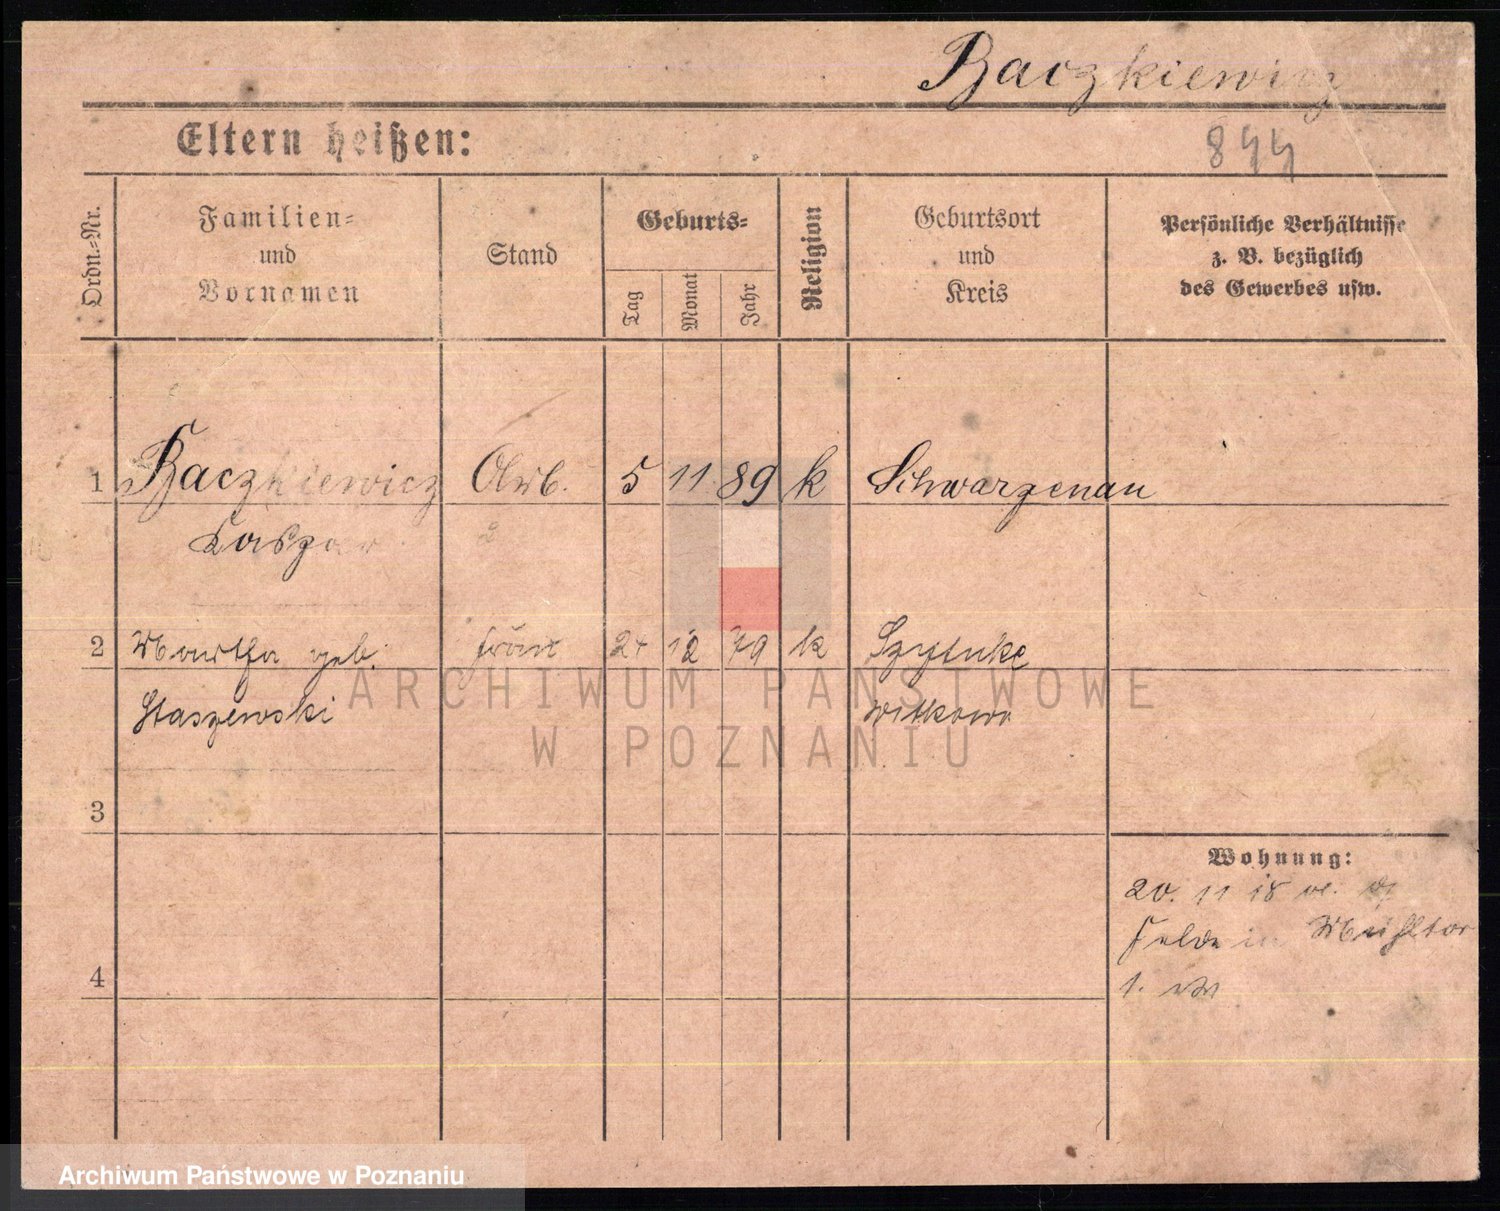 Baczkiewicz
Eltern heißen:
844
Ordn.-Nr.
Familien-
und
Vornamen
Stand
Geburts-
Tag
Monat
Jahr
Religion
Geburtsort
und
Kreis
Persönliche Verhältnisse
z. B. bezüglich
des Gewerbes usw.
1 Baczkiewicz Arb. 5 11 89 k Schwarzenau
Kaspar
2 Martha geb. 24 12 79 k
Staszewski Witkowo
3
4
Wohnung:
20. 11 18
Felde in Mühltor
1.
ARCHIWUM PAŃSTWOWE
W POZNANIU
Archiwum Państwowe w Poznaniu